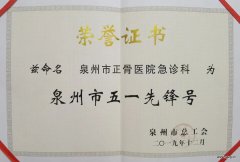 荣誉证书
兹命名 泉州市正骨医院急诊科 为
泉州市五一先锋号
泉州市总工会
二〇一九年十二月